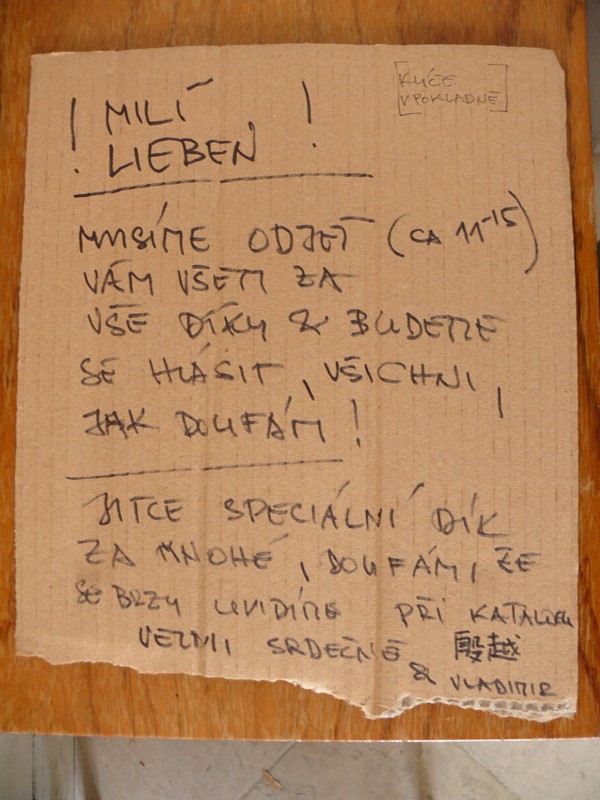 KLÍČE
V POKLADNĚ
! MILÍ !
! LIEBEN
MUSÍME ODJEŤ (CA 11-15)
VÁM VŠEM ZA
VŠE DÍKY & BUDEME
SE HLÁSIT, VŠICHNI,
JAK DOUFÁM!
JITCE SPECIÁLNÍ DÍK
ZA MNOHÉ, DOUFÁM, ŽE
SE BRZY UVIDÍME PŘI KATALOGU
VELMI SRDEČNĚ 殷越
& VLADIMIR